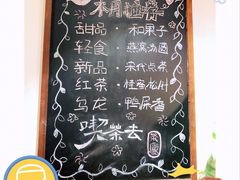 本月推荐
甜品·和果子
轻食·燕窝汤圆
新品·宋代点茶
红茶·桂香龙眼
乌龙·鸭屎香
喫茶去